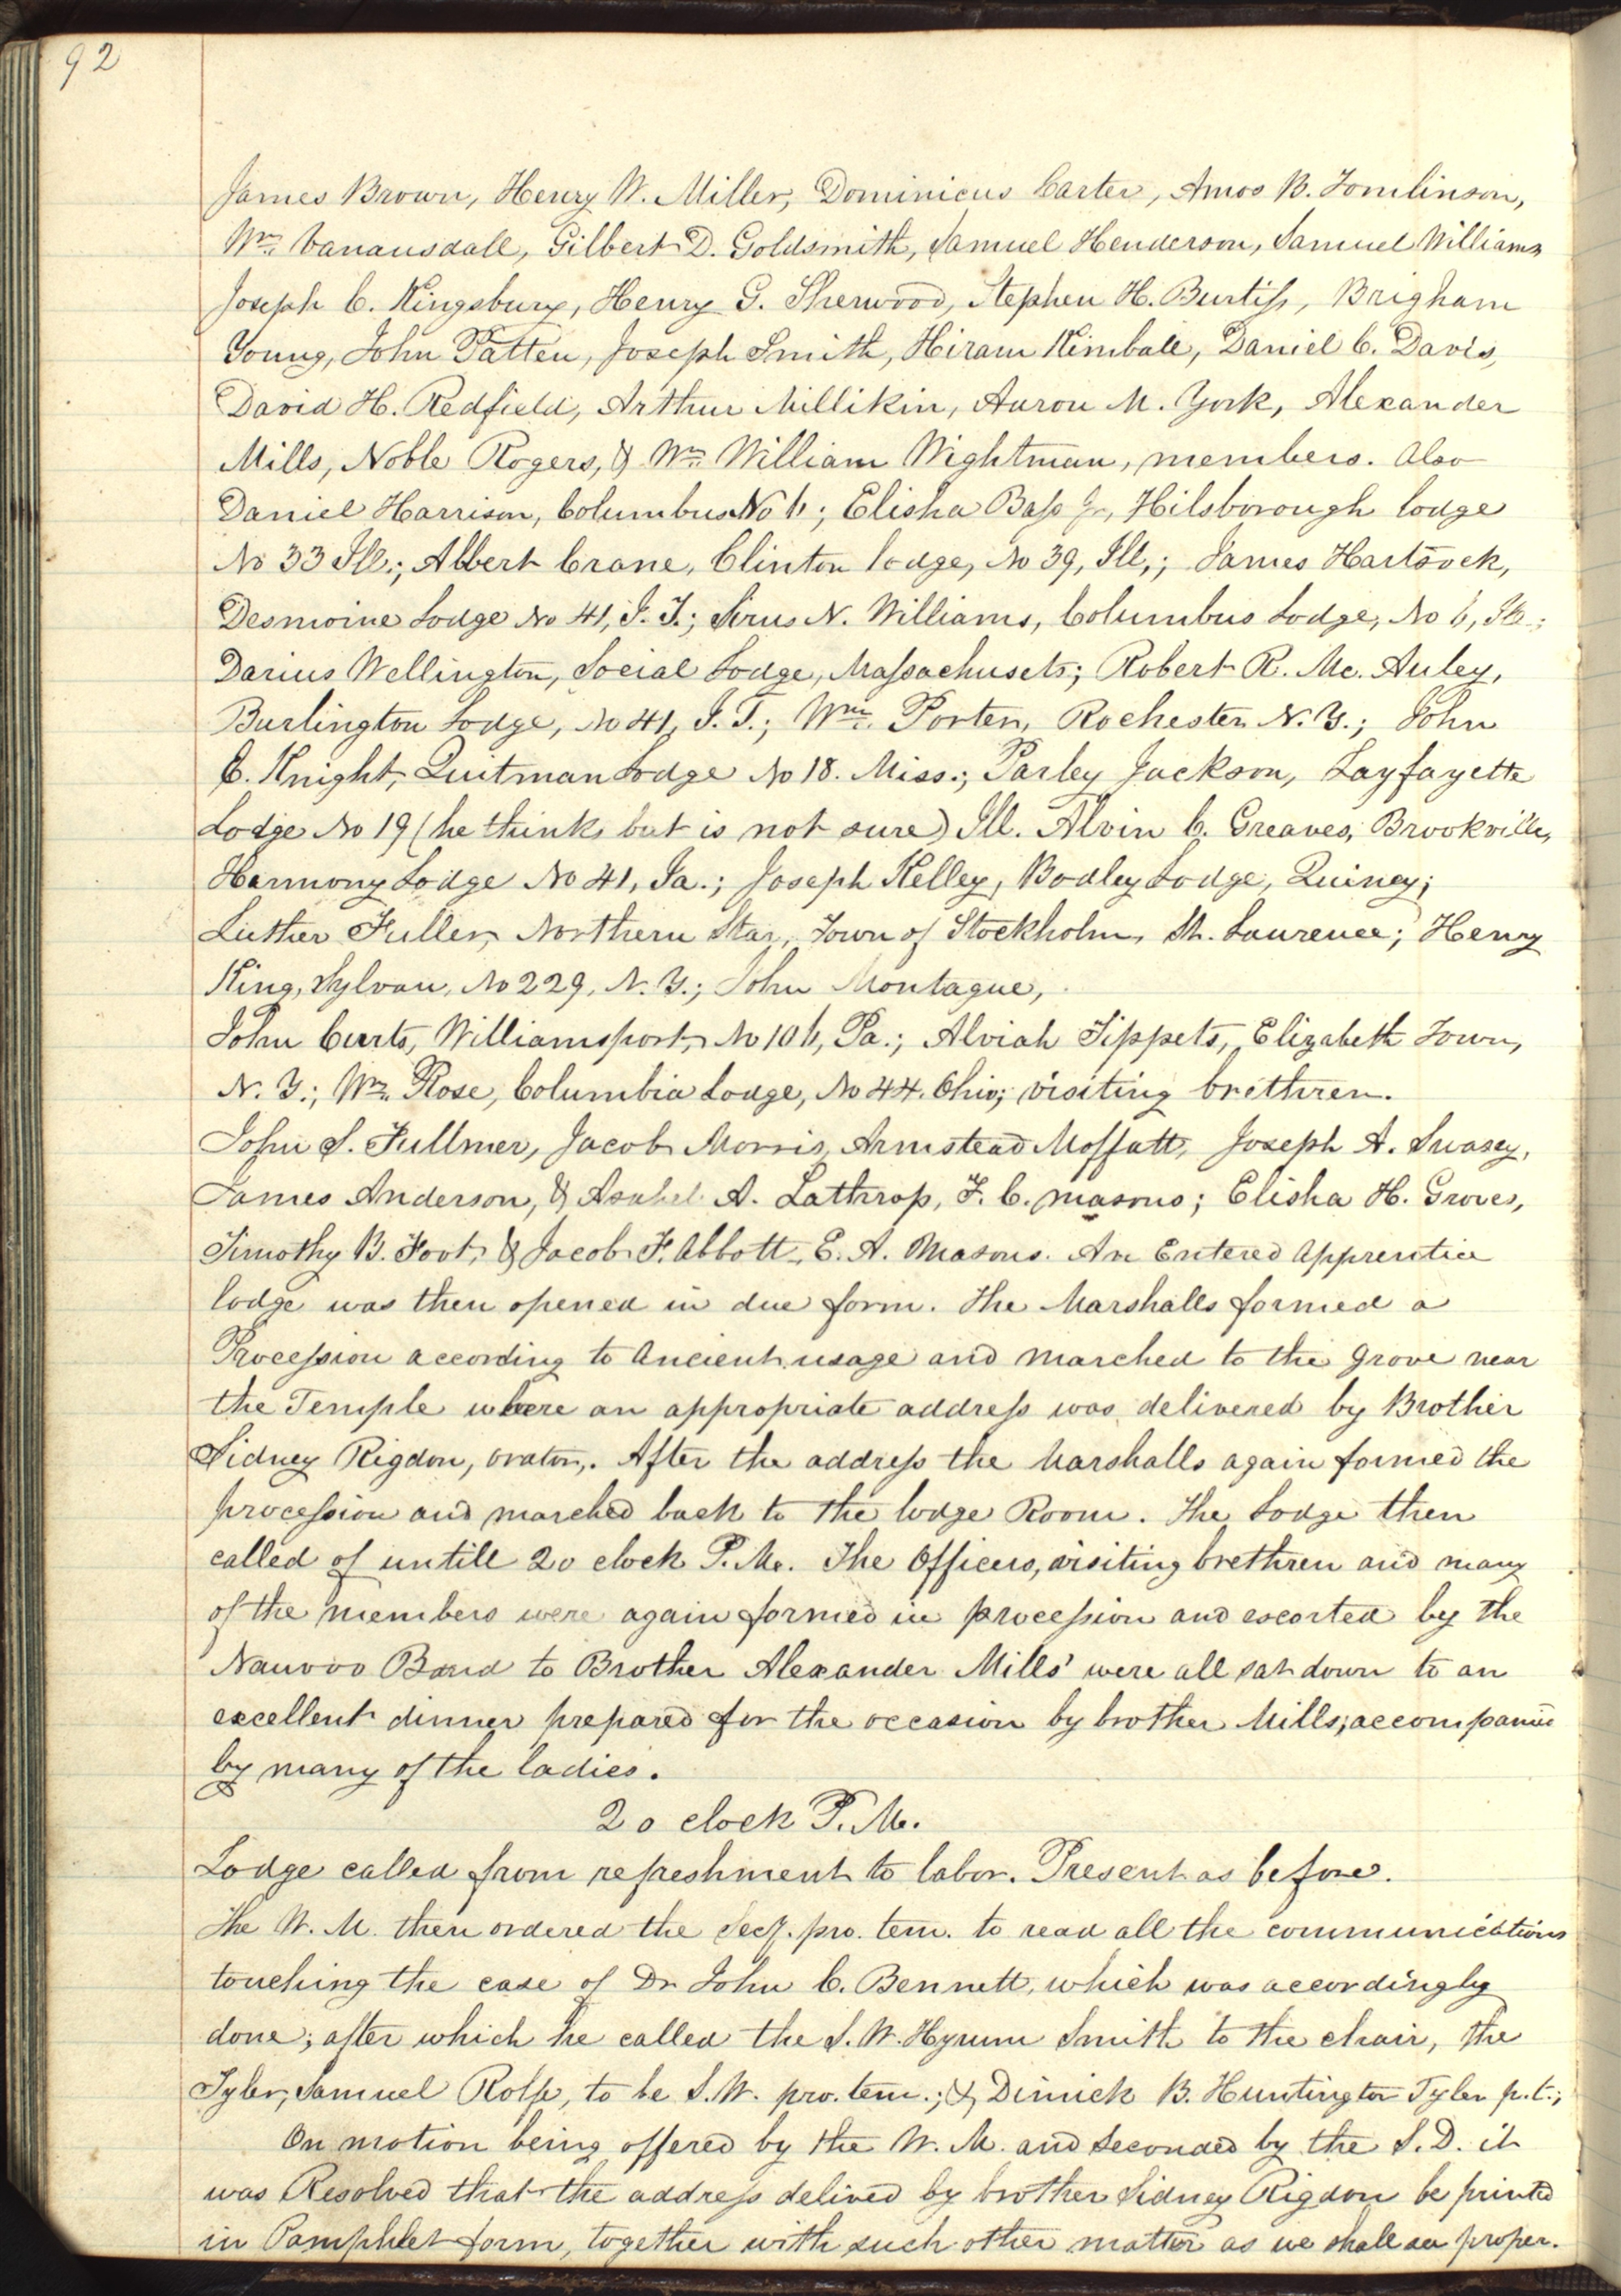 92
James Brown, Henry W. Miller, Dominicus Carter, Amos B. Tomlinson,
Wm. Vanausdall, Gilbert D. Goldsmith, Samuel Henderson, Samuel Williams
Joseph C. Kingsbury, Henry G. Sherwood, Stephen H. Burtiss, Brigham
Young, John Patten, Joseph Smith, Hiram Kimball, Daniel C. Davis,
David H. Redfield, Arthur Millikin, Auron M. York, Alexander
Mills, Noble Rogers, & Wm. William Wightman, members. Also
Daniel Harrison, Columbus No 6; Elisha Bass Jr, Hilsborough lodge
No 33 Ill.; Albert Crane, Clinton lodge, No 39, Ill,; James Hartsock,
Desmoine Lodge No 41, I. T.; Sirus N. Williams, Columbus Lodge, No 6, Ill.;
Darius Wellington, Social Lodge, Massachusets; Robert R. Mc. Auley,
Burlington Lodge, No 41, I. T.; Wm. Porter, Rochester N. Y.; John
C. Knight, Quitman Lodge No 18. Miss.; Parley Jackson, Layfayette
Lodge No 19 (he thinks but is not sure) Ill. Alvin C. Greaves, Brookville,
Harmony Lodge No 41, Ia.; Joseph Kelley, Bodley Lodge, Quincy;
Luther Fuller, Northern Star, Town of Stockholm, St. Laurence; Henry
King, Sylvan, No 229, N. Y.; John Montague,
John Curts, Williamsport, No 106, Pa.; Alviah Tippets, Elizabeth Town,
N. Y.; Wm. Rose, Columbia Lodge, No 44. Ohio; visiting brethren.
John S. Fullmer, Jacob Morris, Armstead Moffatt, Joseph A. Swasey,
James Anderson, & Asahel A. Lathrop, F. C. masons; Elisha H. Groves,
Timothy B. Foot, & Jacob F. Abbott, E. A. Masons. An Entered Apprentice
lodge was then opened in due form. The Marshalls formed a
Procession according to Ancient usage and marched to the Grove near
the Temple where an appropriate address was delivered by Brother
Sidney Rigdon, orator,. After the address the Marshalls again formed the
procession and marched back to the lodge Room. The Lodge then
called of untill 2 o clock P. M. The Officers, visiting brethren and many
of the members were again formed in procession and escorted by the
Nauvoo Band to Brother Alexander Mills' were all sat down to an
excellent dinner prepared for the occasion by brother Mills; accompanied
by many of the ladies.
2 o clock P. M.
Lodge called from refreshment to labor. Present as before.
The W. M. then ordered the Secy. pro. tem. to read all the communications
touching the case of Dr John C. Bennett, which was accordingly
done; after which he called the S. W. Hyrum Smith to the chair, the
Tyler, Samuel Rolfe, to be S. W. pro. tem.; & Dimick B. Huntington Tyler p. t.;
On motion being offered by the W. M. and seconded by the S. D. it
was Resolved that the address delived by brother Sidney Rigdon be printed
in Pamphlet form, together with such other matter as we shall see proper.